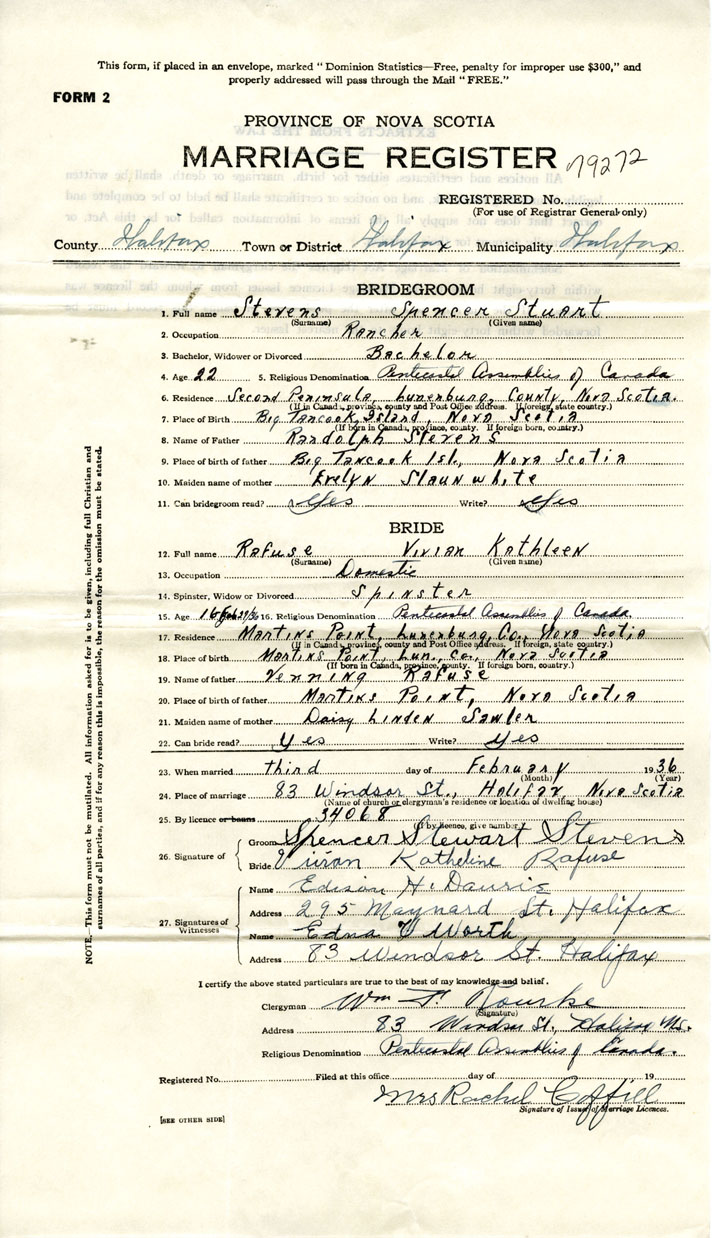 This form, if placed in an envelope, marked "Dominion Statistics—Free, penalty for improper use $300," and
properly addressed will pass through the Mail "FREE."
FORM 2
PROVINCE OF NOVA SCOTIA
MARRIAGE REGISTER 79272
REGISTERED No.
(For use of Registrar General only)
County Halifax Town or District Halifax Municipality Halifax
BRIDEGROOM
1. Full name Stevens Spencer Stuart
(Surname) (Given name)
2. Occupation Rancher
3. Bachelor, Widower or Divorced Bachelor
4. Age 22 5. Religious Denomination Pentecostal Assemblies of Canada
6. Residence Second Peninsula, Lunenburg, County, Nova Scotia.
(If in Canada, province, county and Post Office address. If foreign, state country.)
7. Place of Birth Big Tancook Island Nova Scotia
(If born in Canada, province, county. If foreign born, country.)
8. Name of Father Randolph Stevens
9. Place of birth of father Big Tancook Isl., Nova Scotia
10. Maiden name of mother Evelyn Slaunwhite
11. Can bridegroom read? Yes Write? Yes
BRIDE
12. Full name Rafuse Vivian Kathleen
(Surname) (Given name)
13. Occupation Domestic
14. Spinster, Widow or Divorced Spinster
15. Age 16 16. Religious Denomination Pentecostal Assemblies of Canada.
17. Residence Martins Point, Lunenburg, Co., Nova Scotia
(If in Canada, province, county and Post Office address. If foreign, state country.)
18. Place of birth Martins Point, Lun., Co., Nova Scotia
(If born in Canada, province, county. If foreign born, country.)
19. Name of father Venning Rafuse
20. Place of birth of father Martins Point, Nova Scotia
21. Maiden name of mother Daisy Linden Sawler
22. Can bride read? Yes Write? Yes
23. When married third day of February 1936
(Month) (Year)
24. Place of marriage 83 Windsor St., Halifax, Nova Scotia
(Name of church or clergyman's residence or location of dwelling house)
25. By licence or banns 34068
(If by licence, give number)
26. Signature of Groom Spencer Stewart Stevens
Bride Vivian Katheline Rafuse
27. Signatures of Witnesses Name Edison H. Daurie
Address 295 Maynard St. Halifax
Name Edna Worth
Address 83 Windsor St. Halifax
I certify the above stated particulars are true to the best of my knowledge and belief.
Clergyman Wm F. Rourke
(Signature)
Address 83 Windsor St., Halifax N.S.
Religious Denomination Pentecostal Assemblies of Canada.
Registered No. Filed at this office day of 19
Mrs Rachel Coffill
Signature of Issuer of Marriage Licences.
[SEE OTHER SIDE]
NOTE.—This form must not be mutilated. All information asked for is to be given, including full Christian and
surnames of all parties, and if for any reason this is impossible, the reason for the omission must be stated.